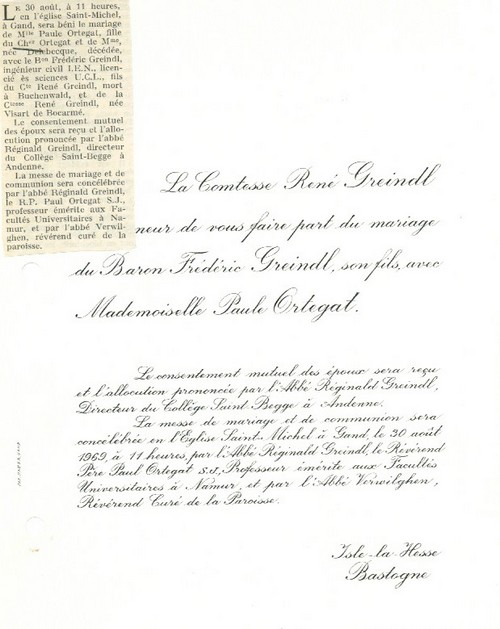 LE 30 août, à 11 heures,
en l'église Saint-Michel,
à Gand, sera béni le mariage
de Mlle Paule Ortegat, fille
du Cher Ortegat et de Mme,
née Delebecque, décédée,
avec le Bon Frédéric Greindl,
ingénieur civil I.E.N., licen-
cié ès sciences U.C.L., fils
du Cte René Greindl, mort
à Buchenwald, et de la
Ctesse René Greindl, née
Visart de Bocarmé.
Le consentement mutuel
des époux sera reçu et l'allo-
cution prononcée par l'abbé
Réginald Greindl, directeur
du Collège Saint-Begge à
Andenne.
La messe de mariage et de
communion sera concélébrée
par l'abbé Réginald Greindl,
le R.P. Paul Ortegat S.J.,
professeur émérite aux Fa-
cultés Universitaires à Na-
mur, et par l'abbé Verwil-
ghen, révérend curé de la
paroisse.
La Comtesse René Greindl
neur de vous faire part du mariage
du Baron Frédéric Greindl, son fils, avec
Mademoiselle Paule Ortegat.
Le consentement mutuel des époux sera reçu
et l'allocution prononcée par l'Abbé Réginald Greindl,
Directeur du Collège Saint Begge à Andenne.
La messe de mariage et de communion sera
concélébrée en l'Eglise Saint-Michel à Gand, le 30 août
1969, à 11 heures, par l'Abbé Réginald Greindl, le Révérend
Père Paul Ortegat S.J., Professeur émérite aux Facultés
Universitaires à Namur, et par l'Abbé Verwilghen,
Révérend Curé de la Paroisse.
Isle-la-Hesse
Bastogne